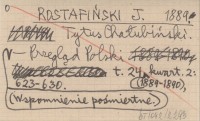 ROSTAFIŃSKI J. 1889.
Tytus Chałubiński.
Przegląd Polski
t. 24, kwart. 2:
623-630. (1889-1890),
(Wspomnienie pośmiertne.)